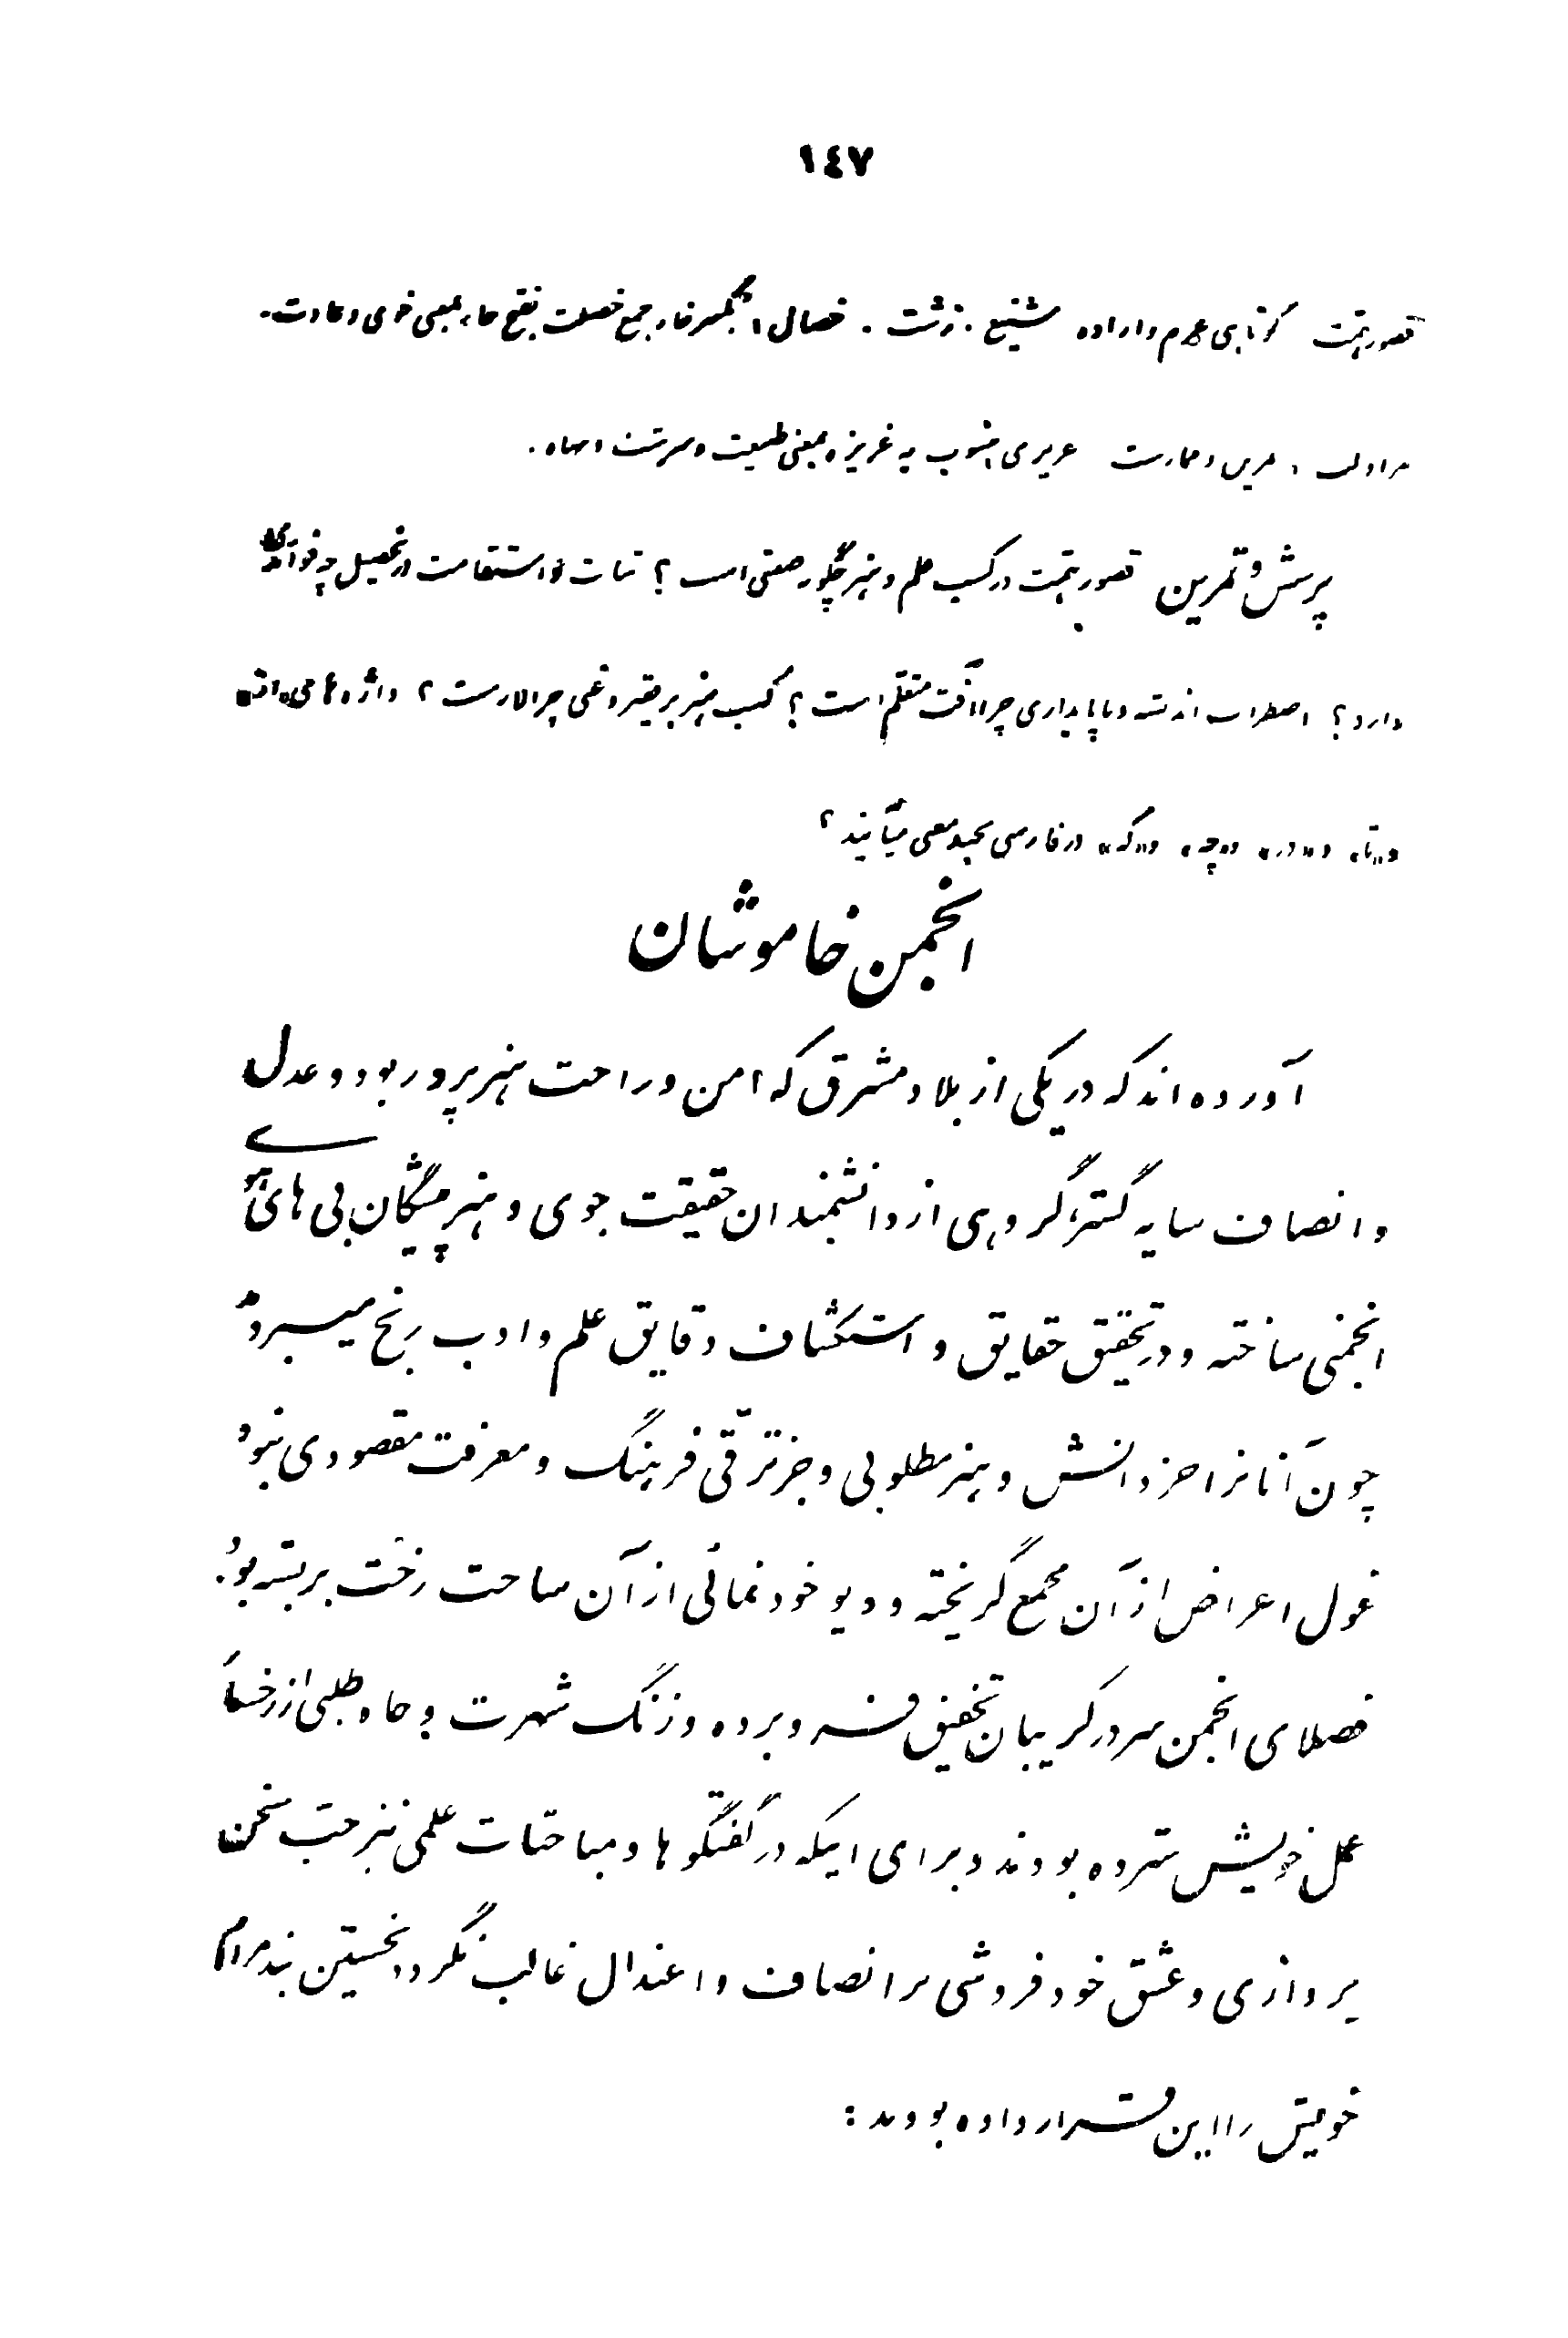 ١٤٧
قصور همت کوتاهی عزم و اراده شنیع . زشت . خصال ، بکسر خاء جمع خصلت بفتح خاء بمعنی خوی و عادت .
مزاولت ، تمرین و ممارست غریزی منسوب به غریزه بمعنی طبیعت و سرشت و نهاد .
پرسش و تمرین قصور همت در کسب علم و هنر چگونه صفتی است ؟ ثبات و استقامت در تحصیل چه فوائدی
دارد ؟ اضطراب اندیشه و ناپایداری چرا آفت متعلم است ؟ کسب هنر بر فقیر و غنی چرا لازمست ؟ واژه‌های
و «تا» و «در» و «چه» و «که» در فارسی بچند معنی میآیند ؟
انجمن خاموشان
آورده‌اند که در یکی از بلاد مشرق که امن و راحت هنرپرور بود و عدل
و انصاف سایه گستر، گروهی از دانشمندان حقیقت جوی و هنرپیشگان بی های و هوی
انجمنی ساخته و در تحقیق حقایق و استکشاف دقایق علم و ادب رنج میبردند
چون آنانرا جز دانش و هنر مطلوبی و جز ترقی فرهنگ و معرفت مقصودی نبود
غول اغراض از آن مجمع گریخته و دیو خودنمائی از آن ساحت رخت بربسته بود .
فضلای انجمن سر در گریبان تحقیق فرو برده و زنگ شهرت و جاه طلبی از رخسار
عمل خویش سترده بودند و برای اینکه در گفتگوها و مباحثات علمی نیز حب سخن
پردازی و عشق خودفروشی بر انصاف و اعتدال غالب نگردد نخستین بند مرام
خویش را این قرار داده بودند :